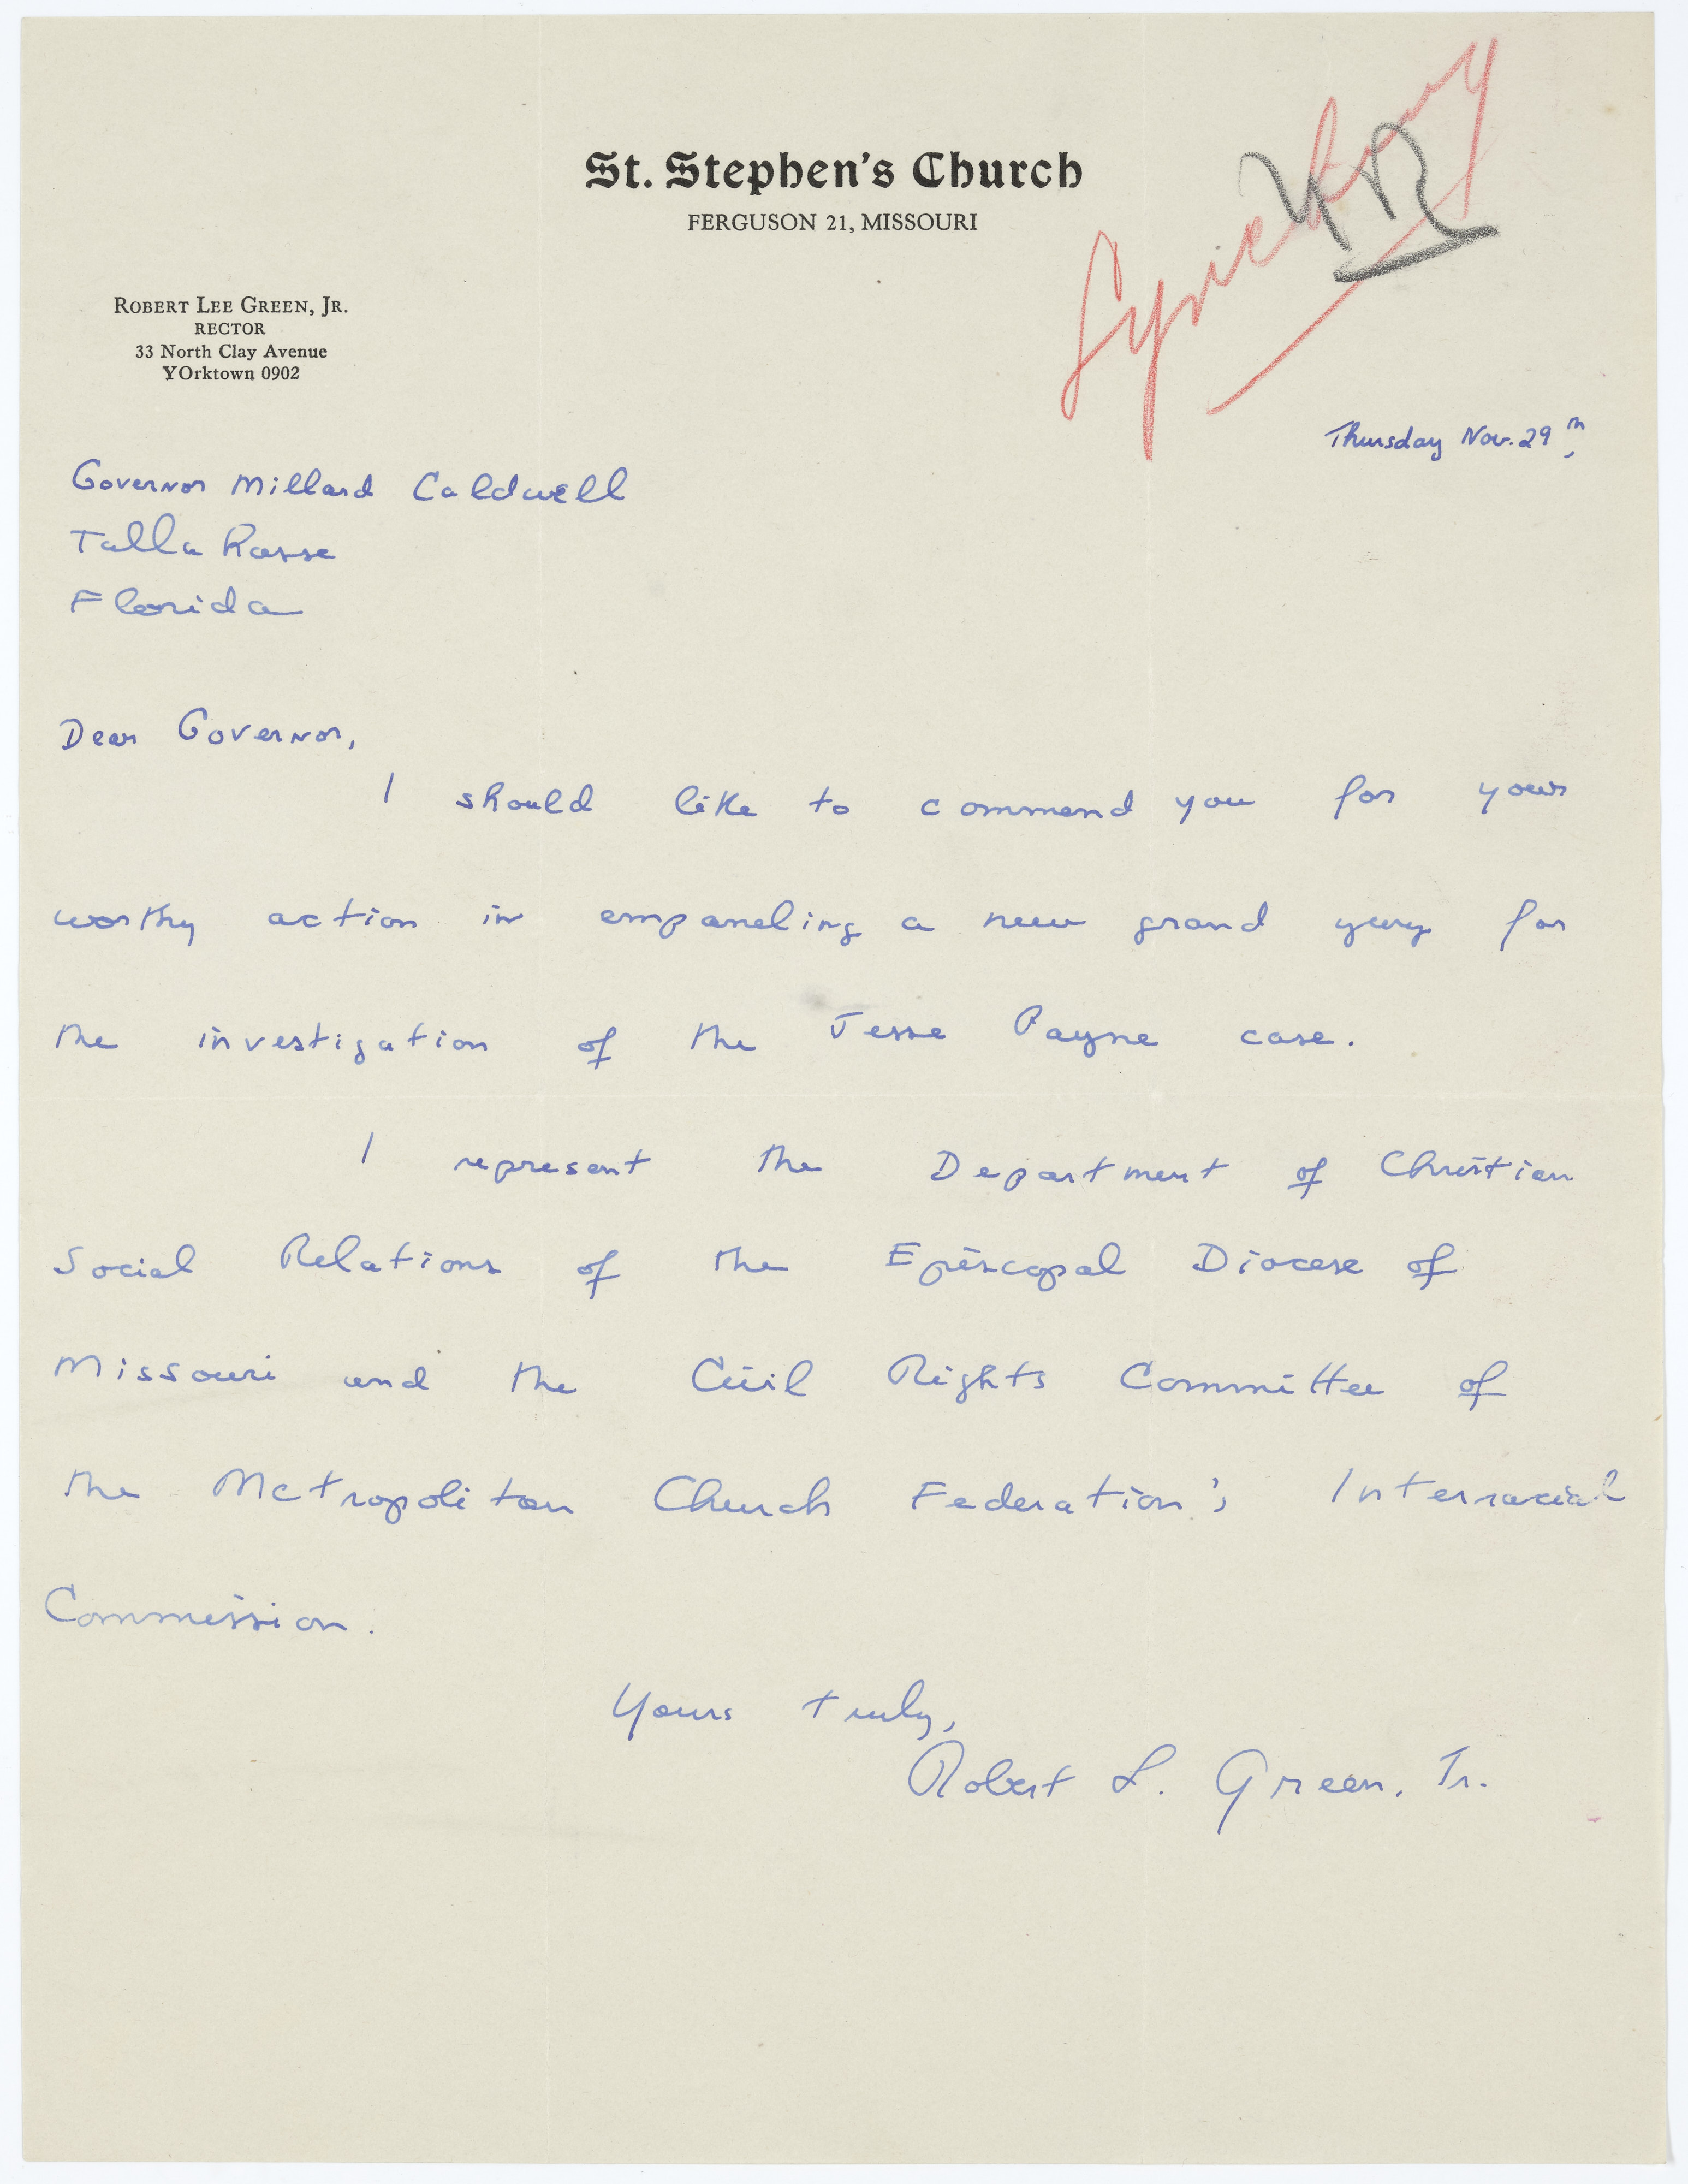 St. Stephen's Church
FERGUSON 21, MISSOURI
Lynching
ROBERT LEE GREEN, JR.
RECTOR
33 North Clay Avenue
YOrktown 0902
Thursday Nov. 29th,
Governor Millard Caldwell
Talla hasse
Florida
Dear Governor,
I should like to commend you for your
worthy action in empaneling a new grand yury for
the investigation of the Jesse Payne case.
I represent the Department of Christian
Social Relations of the Episcopal Diocese of
Missouri and the Civil Rights Committee of
the Metropolitan Church Federation's Interracial
Commission.
Yours truly,
Robert L. Green, Jr.